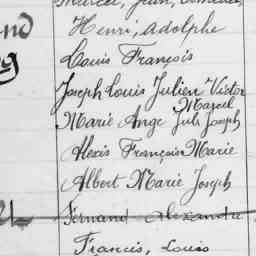 Marcel, Jean,
nd Henri, Adolphe
Louis François
Joseph Louis Julien Victor
Marcel
Marie Ange Jule Joseph
Alexis François Marie
Albert Marie Joseph
Fernand Alexandre
Francis, Louis